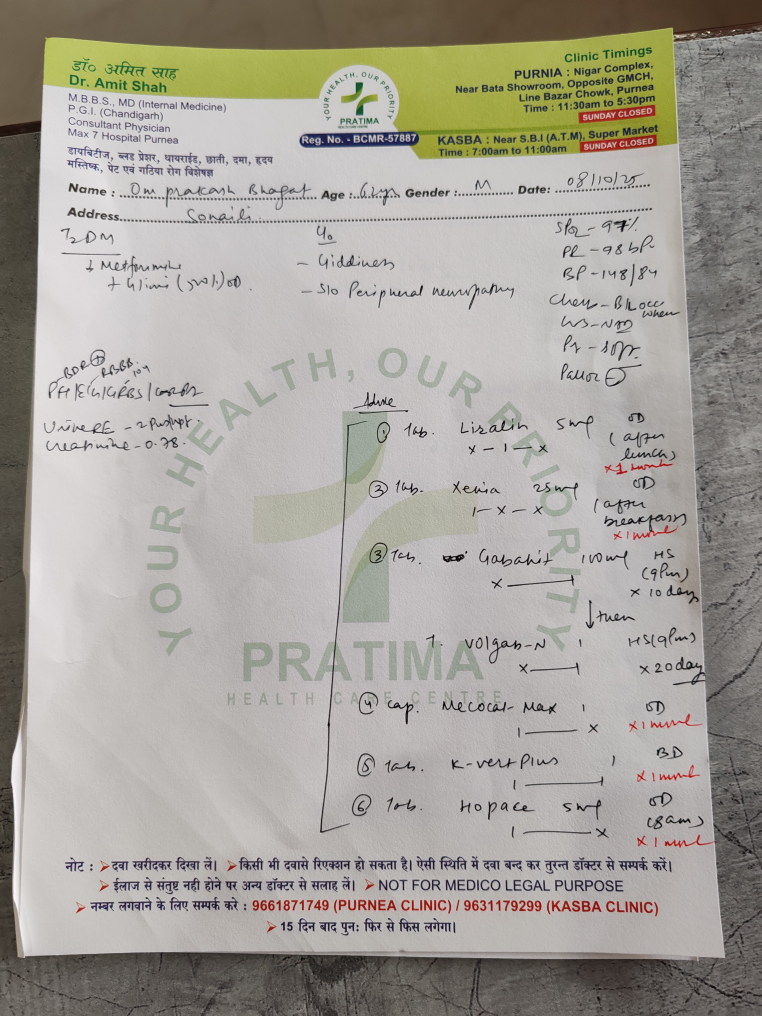 डॉ० अमित साह
Dr. Amit Shah
M.B.B.S., MD (Internal Medicine)
P.G.I. (Chandigarh)
Consultant Physician
Max 7 Hospital Purnea
डायबिटीज, ब्लड प्रेशर, थायराईड, छाती, दमा, हृदय
मस्तिष्क, पेट एवं गठिया रोग विशेषज्ञ
YOUR HEALTH, OUR PRIORITY
PRATIMA
HEALTH CARE CENTRE
Reg. No. - BCMR-57887
Clinic Timings
PURNIA : Nigar Complex,
Near Bata Showroom, Opposite GMCH,
Line Bazar Chowk, Purnea
Time : 11:30am to 5:30pm
SUNDAY CLOSED
KASBA : Near S.B.I (A.T.M), Super Market
Time : 7:00am to 11:00am SUNDAY CLOSED
Name : Om prakash Bhagat Age : Gender : M Date: 08/10/25
Address Sonaili
T2DM
Metformine
+ Glimi
OD
- Giddiness
- S/o Peripheral neuropathy
SPO2 - 97%
PR - 98
BP - 148/84
Chest -
Pallor
Creatinine - 0.78
Advise
① Tab. Lizalin 5mg OD
x - 1 - x (after
lunch)
x 1 month
② Tab. Xenia 25mg OD
1 - x - x (after
breakfast)
x 1 month
③ Tab. Gabahit 100mg HS
x 1 (9pm)
x 10 days
↓ then
T. Volgab-N 1 HS (9pm)
x 1 x 20 days
④ Cap. Mecocat-Max 1 OD
1 x x 1 month
⑤ Tab. K-vert Plus 1 BD
1 1 x 1 month
⑥ Tab. Hopace 5mg OD
1 x (8am)
x 1 month
YOUR HEALTH, OUR PRIORITY
PRATIMA
HEALTH CARE CENTRE
नोट : ➤ दवा खरीदकर दिखा लें। ➤ किसी भी दवासे रिएक्शन हो सकता है। ऐसी स्थिति में दवा बन्द कर तुरन्त डॉक्टर से सम्पर्क करें।
➤ ईलाज से संतुष्ट नही होने पर अन्य डॉक्टर से सलाह लें। ➤ NOT FOR MEDICO LEGAL PURPOSE
➤ नम्बर लगवाने के लिए सम्पर्क करे : 9661871749 (PURNEA CLINIC) / 9631179299 (KASBA CLINIC)
➤ 15 दिन बाद पुनः फिर से फिस लगेगा।